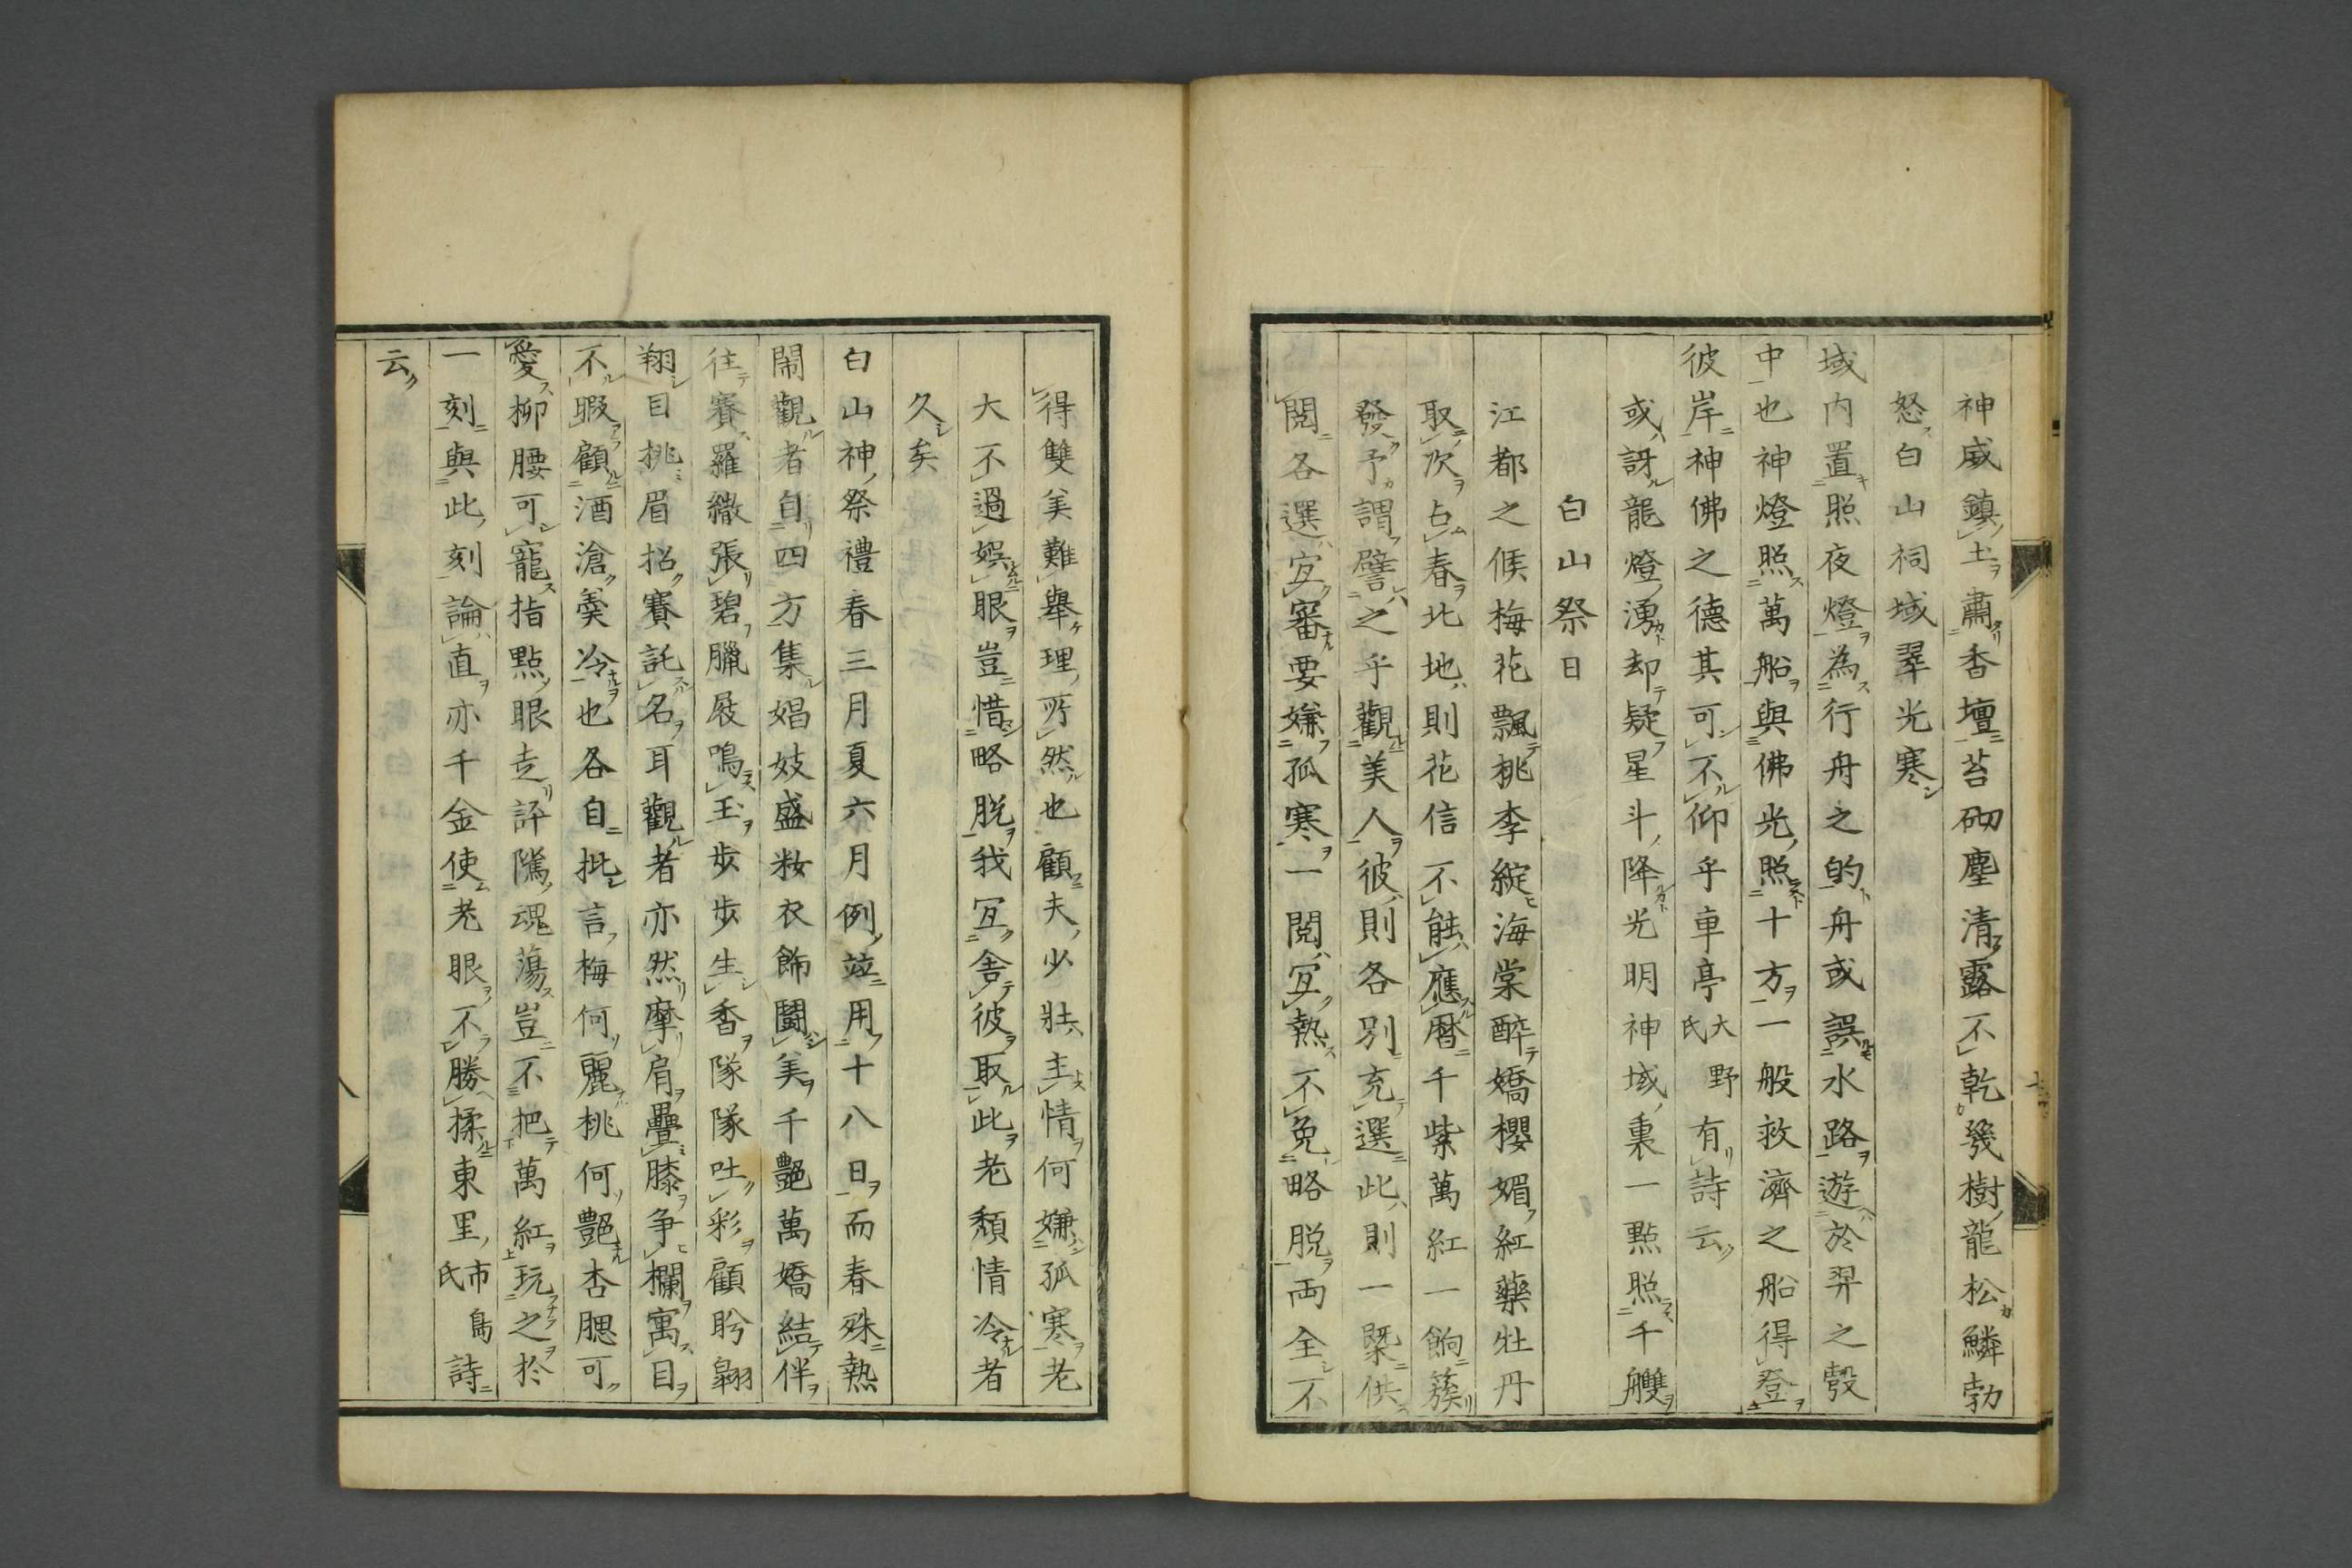 神威鎮土肅香壇苔砌塵清露不乾幾樹龍松鱗勃
怒白山祠域翠光寒
域内置照夜燈為行舟之的舟或誤水路遊於羿之彀
中也神燈照萬船與佛光照十方一般救濟之船得登
彼岸神佛之德其可不仰乎車亭大野氏有詩云
或訝龍燈湧却疑星斗降光明神域裏一點照千艭
白山祭日
江都之候梅花飄桃李綻海棠醉嬌櫻媚紅藥牡丹
取次占春北地則花信不能應曆千紫萬紅一餉簇
發予謂譬之乎觀美人彼則各別充選此則一槩供
閲各選宜審要嫌孤寒一閲宜熱不免略脱両全不
得雙美難舉理所然也顧夫少壯主情何嫌孤寒老
大不過娯眼豈惜略脱我宜舍彼取此老頽情冷者
久矣
白山神祭禮春三月夏六月例竝用十八日而春殊熱
閙觀者自四方集娼妓盛粧衣飾鬪美千艷萬嬌結伴
往賽羅繖張碧臘屐鳴玉步步生香隊隊吐彩顧盻翺
翔目挑眉招賽託名耳觀者亦然摩肩疊膝争欄寓目
不暇顧酒滄羮冷也各自批言梅何麗桃何艷杏腮可
愛柳腰可寵指點眼走評隲魂蕩豈不把萬紅玩之於
一刻與此刻論直亦千金使老眼不勝揉東里市島氏詩
云